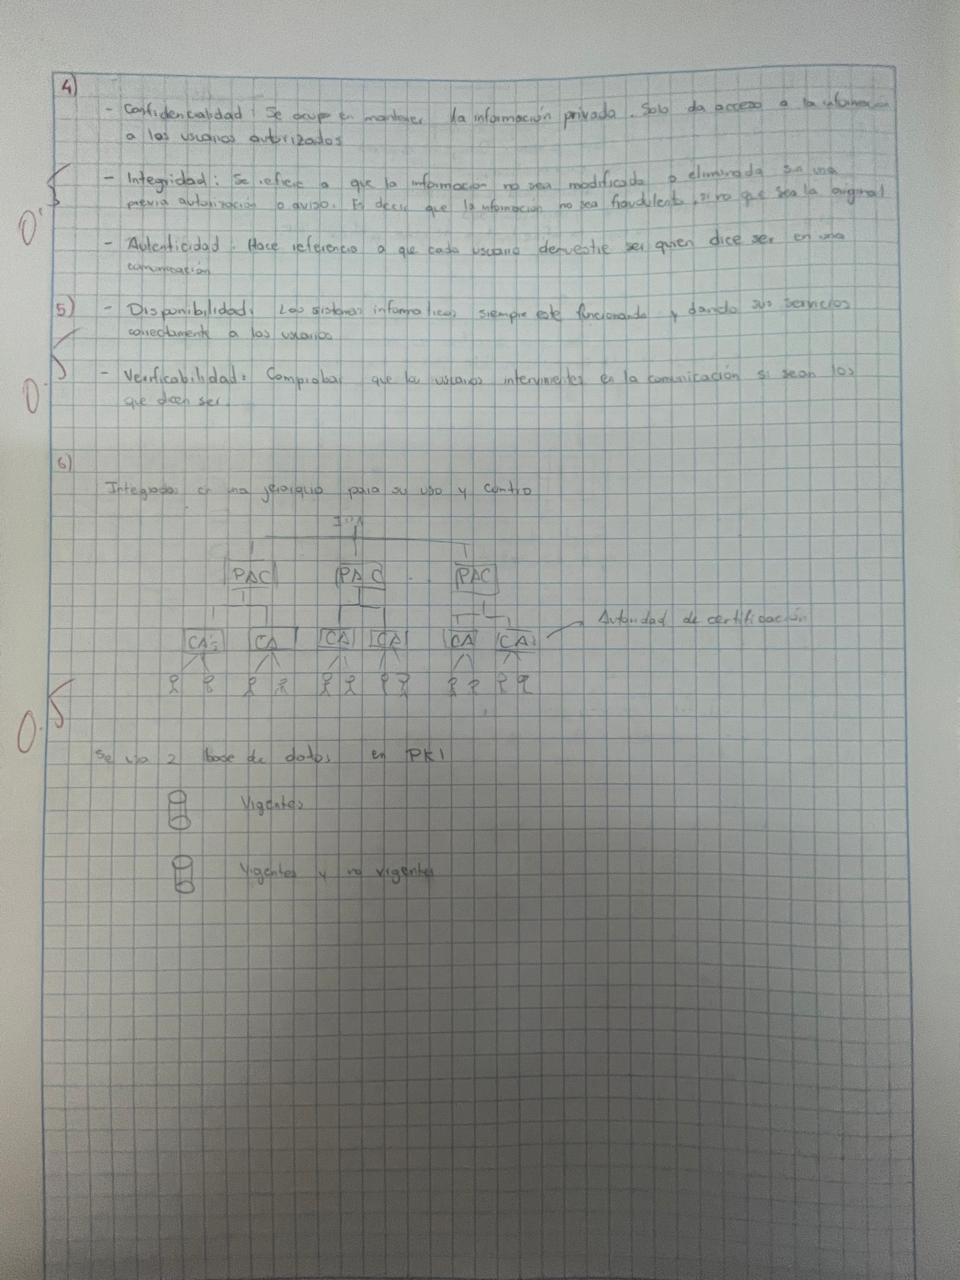 4)
- Confidencialidad: Se ocupa en mantener la información privada. Solo da acceso a la información
a los usuarios autorizados
- Integridad: Se refiere a que la información no sea modificada o eliminada sin una
previa autorización o aviso. Es decir que la información no sea fraudulenta, sino que sea la original
0.5
- Autenticidad: Hace referencia a que cada usuario demuestre ser quien dice ser en una
comunicación
5) - Disponibilidad: Los sistemas informaticos siempre esté funcionando y dando sus servicios
correctamente a los usuarios
0.5
- Verificabilidad: Comprobar que los usuarios intervinientes en la comunicación si sean los
que dicen ser
6)
Integrados en una jerarquia para su uso y control
PAC PAC PAC
CA CA CA CA CA CA Autoridad de certificación
0.5
Se usa 2 base de datos en PKI
Vigentes
Vigentes y no vigentes